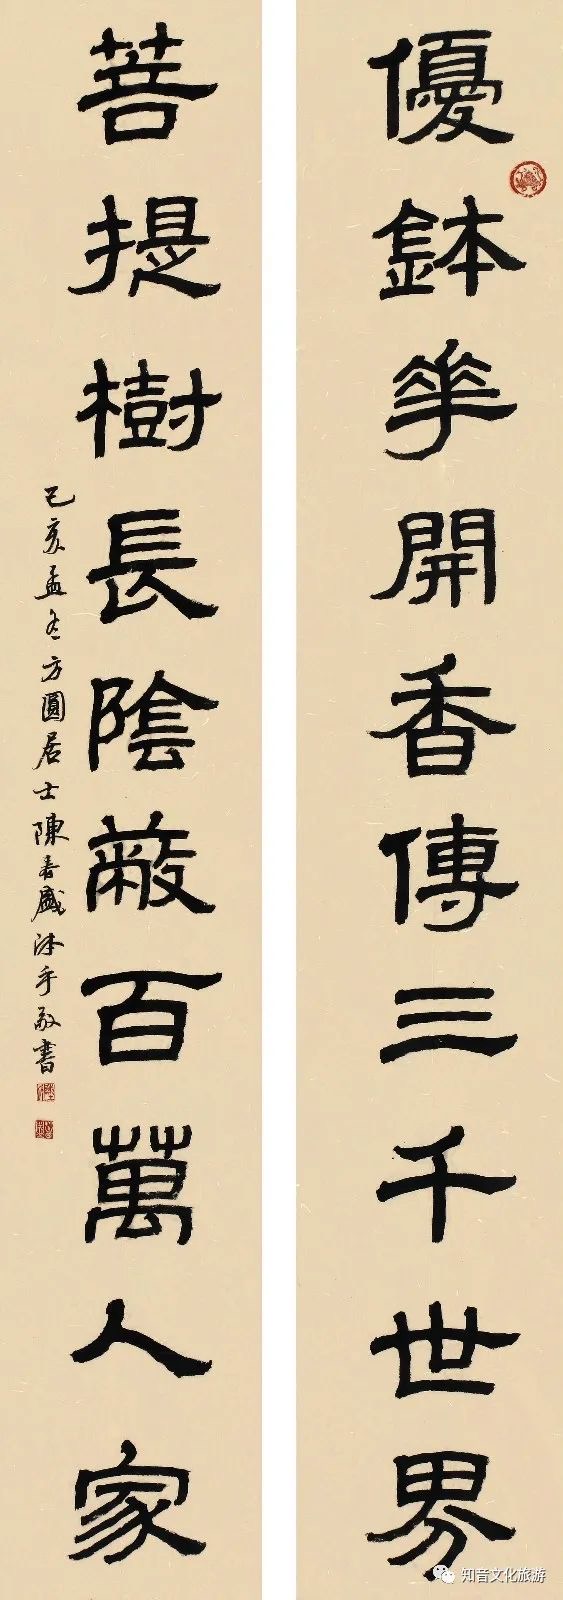 優鉢華開香傳三千世界
菩提樹長陰蔽百萬人家
己亥孟冬方圓居士陳春盛沐手敬書
知音文化旅游